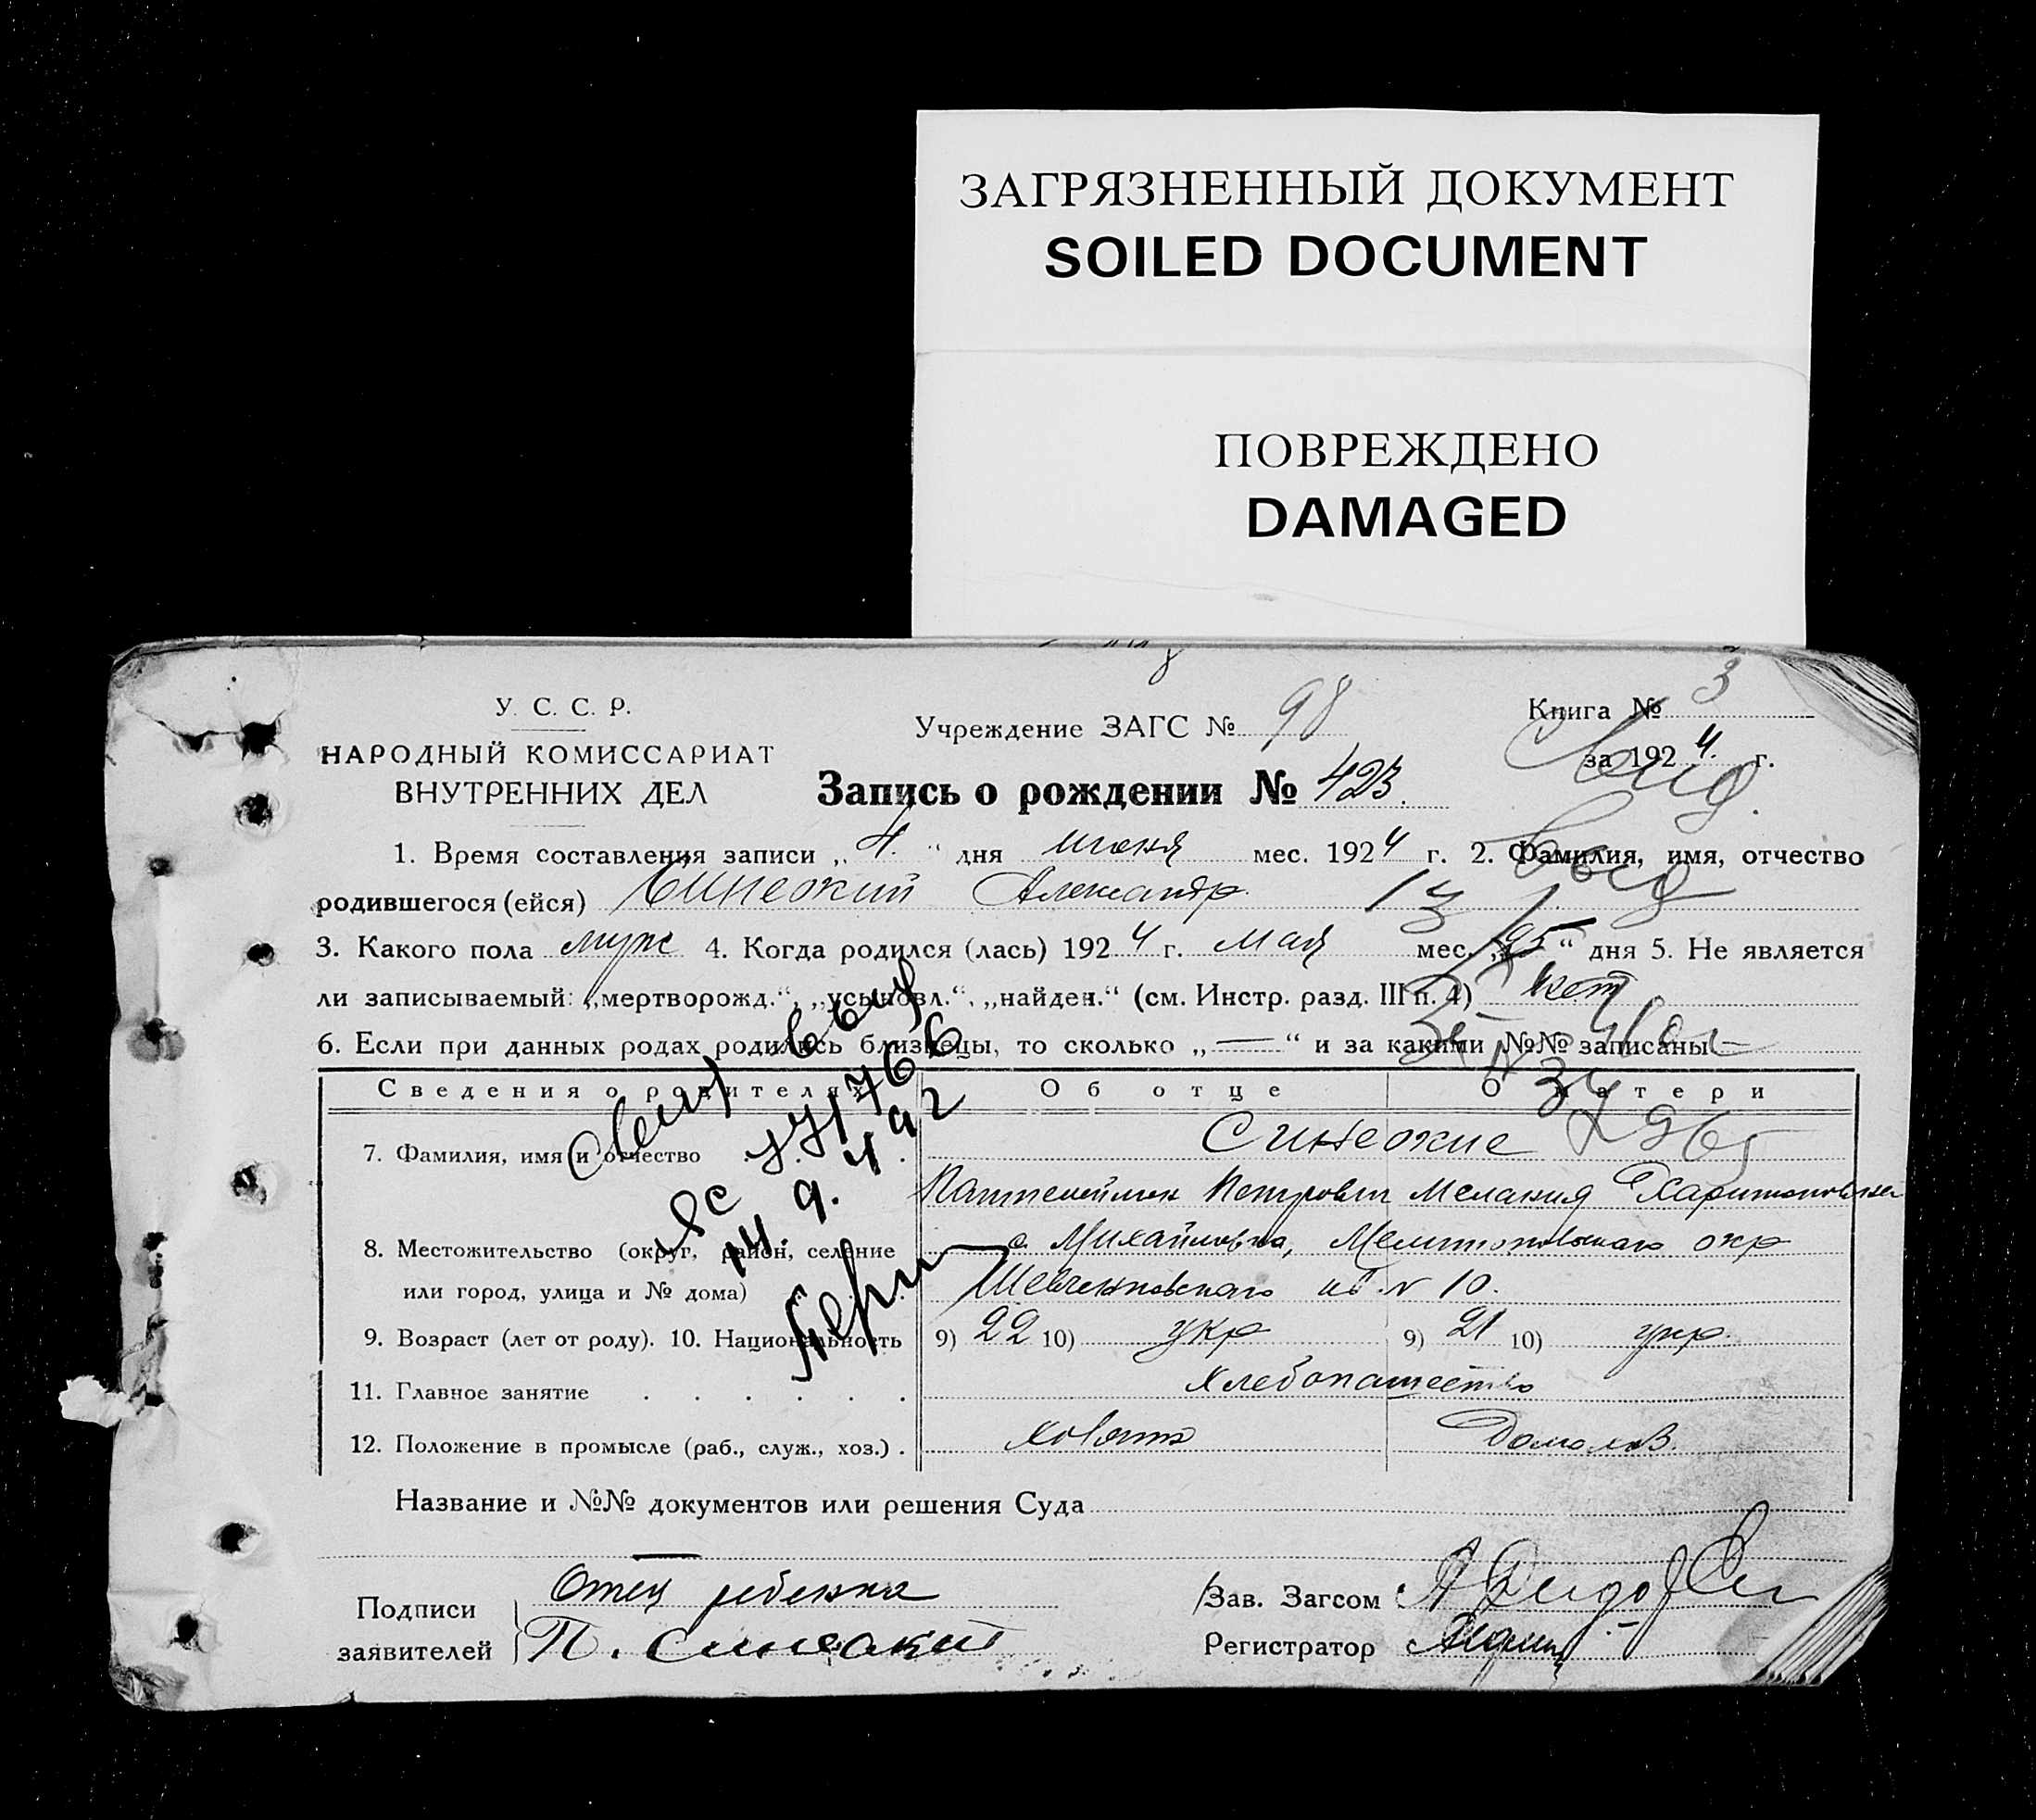 ЗАГРЯЗНЕННЫЙ ДОКУМЕНТ
SOILED DOCUMENT
ПОВРЕЖДЕНО
DAMAGED
У. С. С. Р.
НАРОДНЫЙ КОМИССАРИАТ
ВНУТРЕННИХ ДЕЛ
Учреждение ЗАГС № 98
Книга № 3
за 1924 г.
Запись о рождении № 423.
1. Время составления записи „4.“ дня июня мес. 1924 г. 2. Фамилия, имя, отчество
родившегося (ейся) Синеокий Александр
3. Какого пола муж 4. Когда родился (лась) 1924 г. мая мес. „25“ дня 5. Не является
ли записываемый: „мертворожд.“, „усыновл.“, „найден.“ (см. Инстр. разд. III п. 4) нет
6. Если при данных родах родились близнецы, то сколько „—“ и за какими №№ записаны —
Сведения о родителях Об отце О матери
7. Фамилия, имя и отчество Синеокие
Пантелеймон Петрович Мелания Харитоновна
8. Местожительство (округ, район, селение с. Михайловка, Мелитопольского окр
или город, улица и № дома) Шевченковского № 10.
9. Возраст (лет от роду). 10. Национальность 9) 22 10) укр 9) 21 10) укр.
11. Главное занятие Хлебопашество
12. Положение в промысле (раб., служ., хоз.) хозяин Домохоз.
Название и №№ документов или решения Суда
Подписи
заявителей
Отец ребенка
П. Синеокий
Зав. Загсом
Регистратор